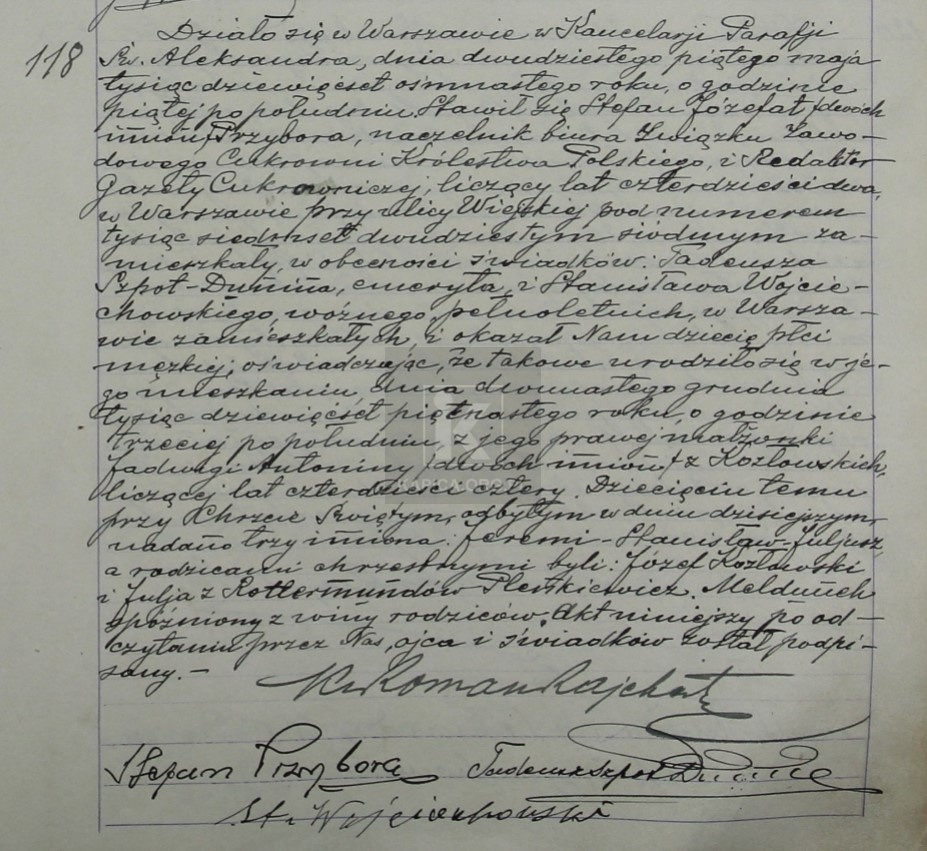 118
Działo się w Warszawie w Kancelarji Parafji
Św. Aleksandra, dnia dwudziestego piątego maja
tysiąc dziewięćset ośmnastego roku, o godzinie
piątej po południu. Stawił się Stefan Józefat /dwóch
imion/ Przybora, naczelnik biura Związku Zawo-
dowego Cukrowni Królestwa Polskiego, i Redaktor
Gazety Cukrowniczej, liczący lat czterdzieści dwa,
w Warszawie przy ulicy Wiejskiej pod numerem
tysiąc siedmset dwudziestym siódmym za-
mieszkały, w obecności świadków: Tadeusza
Szpot-Dunina, emeryta, i Stanisława Wojcie-
chowskiego, woźnego, pełnoletnich, w Warsza-
wie zamieszkałych, i okazał Nam dziecię płci
męzkiej, oświadczając, że takowe urodziło się w je-
go mieszkaniu, dnia dwunastego grudnia
tysiąc dziewięćset piętnastego roku, o godzinie
trzeciej po południu, z jego prawej małżonki
Jadwigi Antoniny /dwóch imion/ z Kozłowskich,
liczącej lat czterdzieści cztery. Dziecięciu temu
przy Chrzcie Świętym, odbytym w dniu dzisiejszym,
nadano trzy imiona: Jeremi-Stanisław-Juljusz,
a rodzicami chrzestnymi byli: Józef Kozłowski
i Julja z Rottermundów Pleśkiewicz. Meldunek
spóźniony z winy rodziców. Akt niniejszy po od-
czytaniu przez Nas, ojca i świadków został podpi-
sany. -
Ks Roman Rajchert
Stefan Przybora Tadeusz Szpot Dunin
St. Wojciechowski